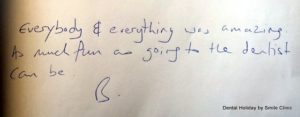 Everybody & everything was amazing.
As much fun as going to the dentist
can be.
B.
Dental Holiday by Smile Clinic